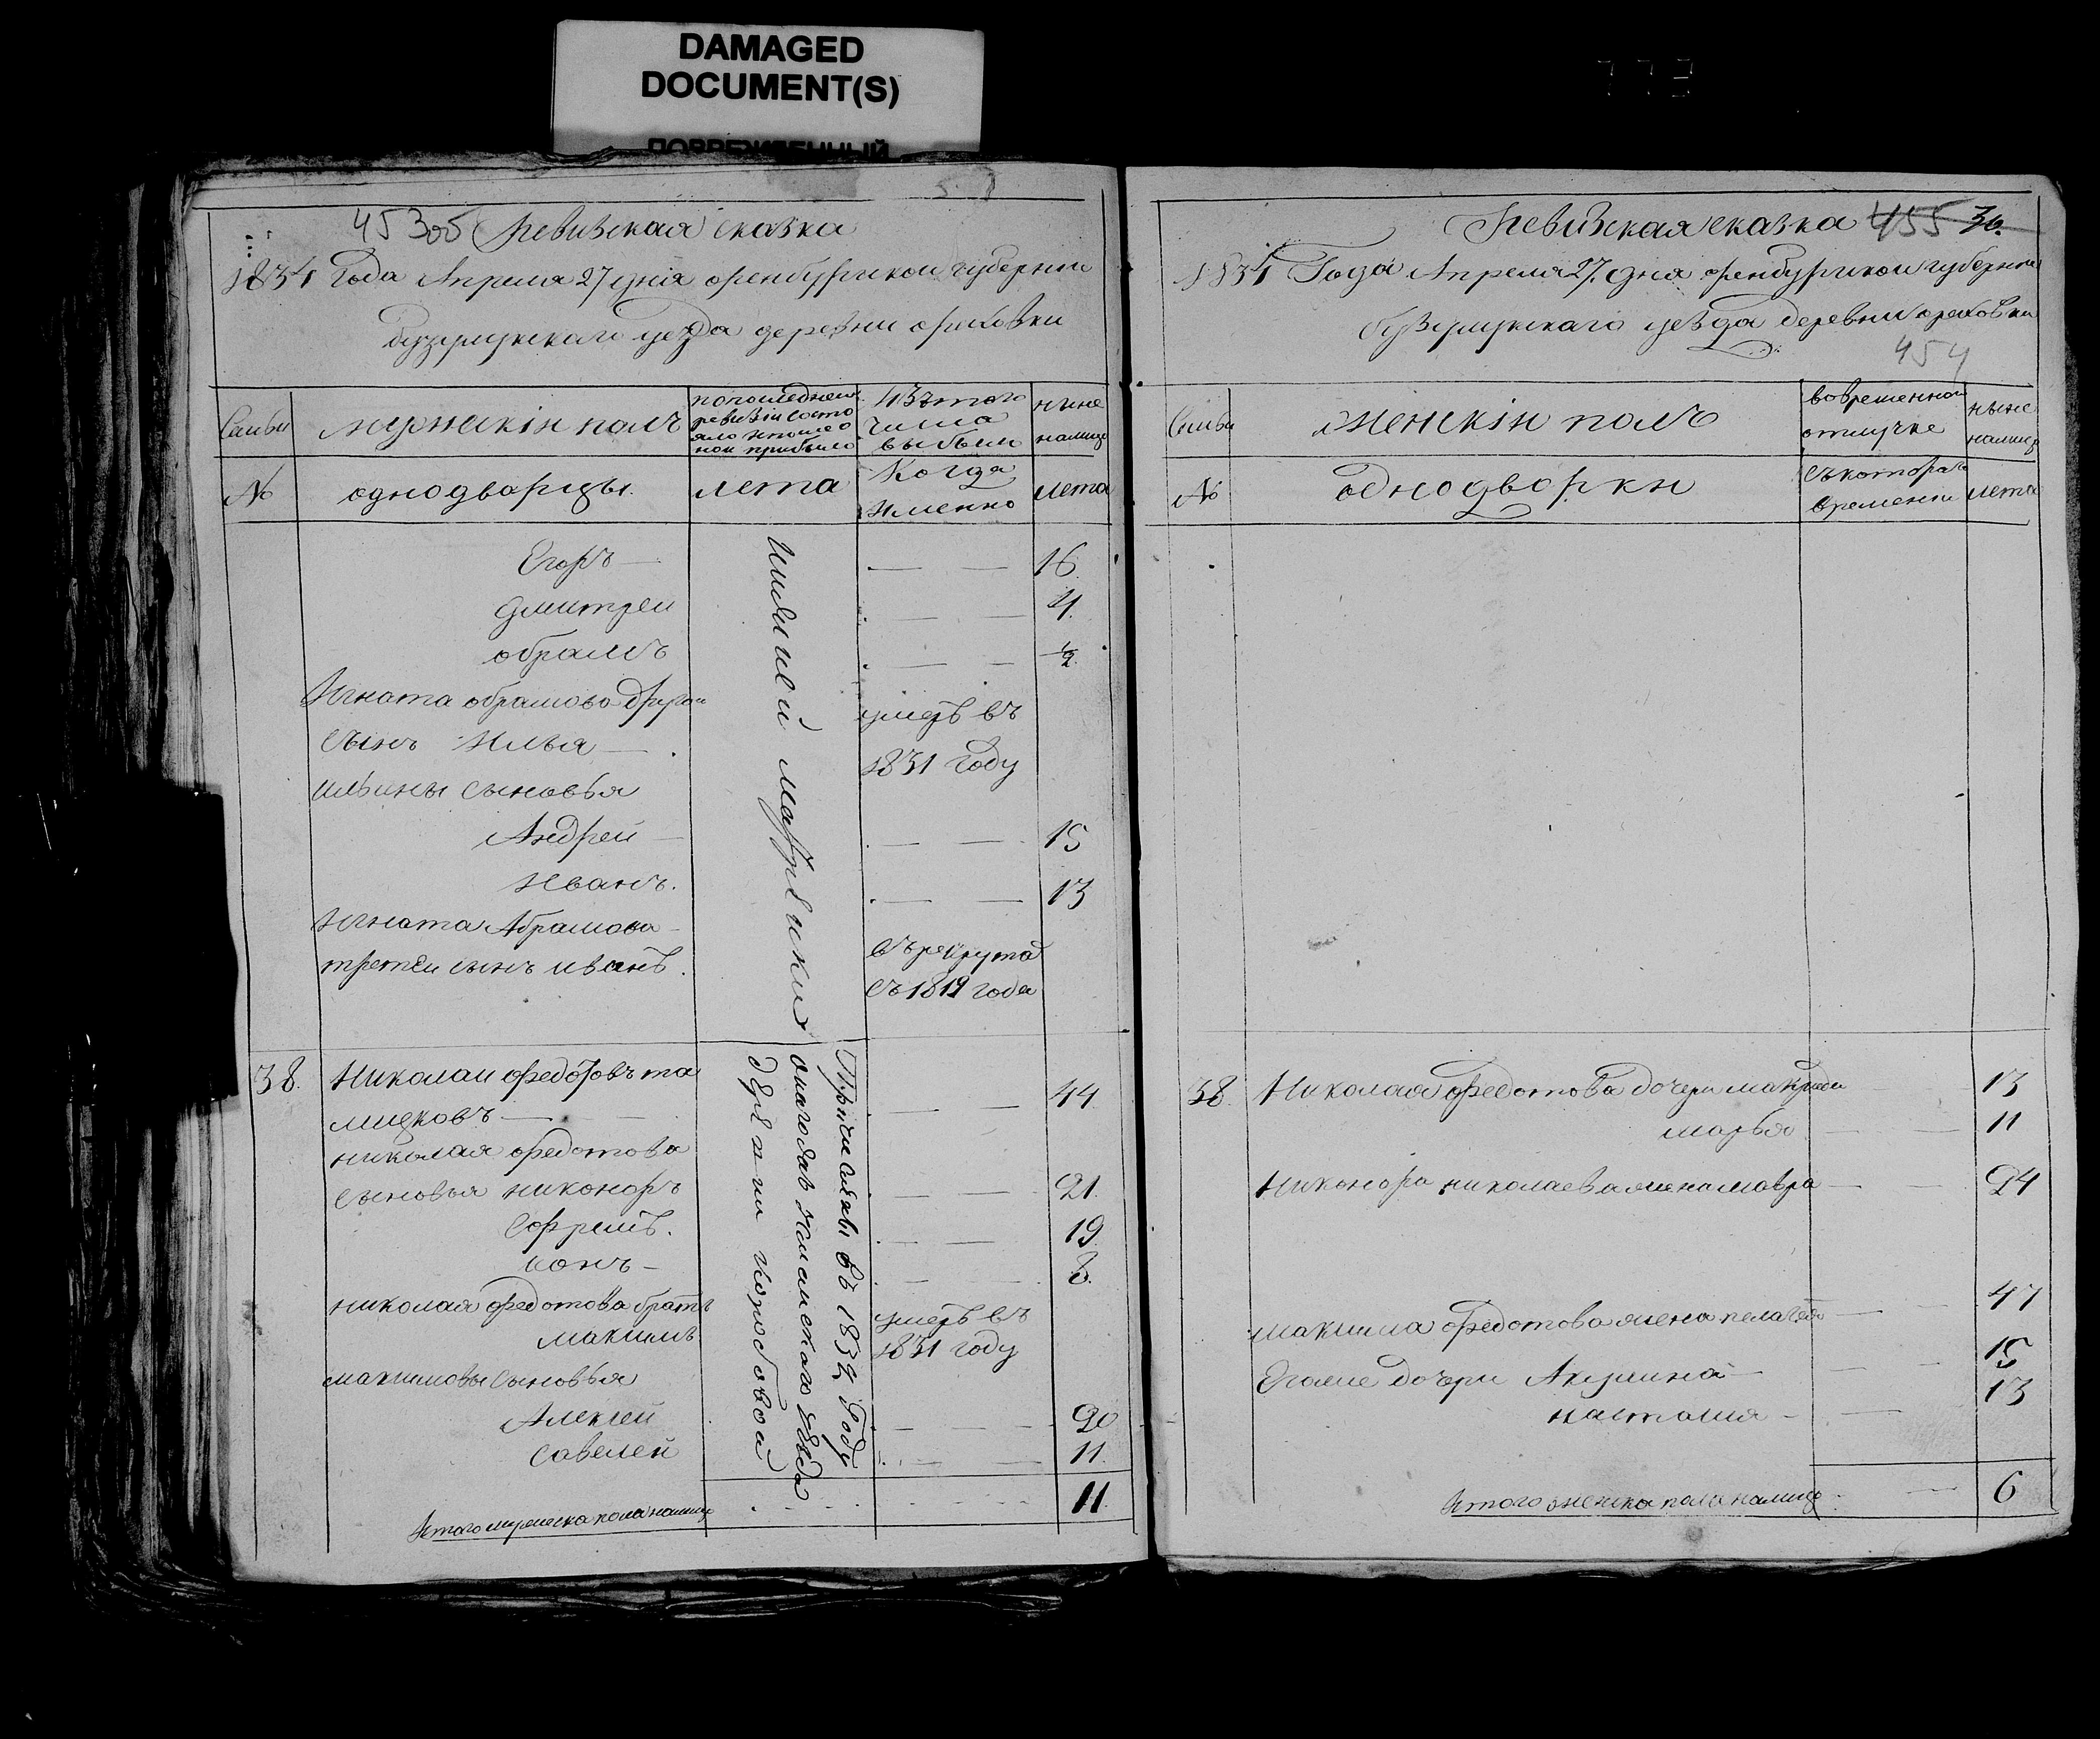 DAMAGED
DOCUMENT(S)
ПОВРЕЖДЕННЫЙ
453об Ревизская сказка
1834 года Апреля 27 дня оренбургской губернии
бузулукскаго уезда деревни ореховки
Семьи
мужескiй полъ
по последней
ревизiи состо
яло и после о
ной прибыло
изъ того
числа
выбыли
ныне
налицо
№
однодворцы.
лета
Когда
именно
лета
Егоръ — — — 16
дмитрей — — 4.
обрамъ — — ½
Игната обрамова другой
сынъ Илья —
умеръ въ
1831 году
ильины сыновья
Андрей — — — 15
Иванъ. — — 13
Игната Абрамова
третей сынъ иванъ.
въ рекрута
съ 1819 года
38. Николай федотовъ та
— — 44
николая федотова
сыновья никоноръ — — 21.
Софремъ. — — 19.
ионъ —
николая федотова братъ
максимъ
умеръ въ
1831 году
максимовы сыновья
Алексей — — 20
савелей — — 11.
Итого мужеска пола налицо 11
Причислены въ 1832 году
уезда
деревни
Ревизская сказка 455 36.
1834 Года Апреля 27. дня оренбургской губернии
бузулукскаго уезда деревни ореховки
454
Семьи
женскiй полъ
во временной
отлучке
ныне
налицо
№
однодворки
съ котораго
времени
лета
38. Николая федотова дочери макрида — 13
марья — — 11
Никонора николаева жена мавра — — 24
максима федотова жена пелагея — — 47
Егоже дочери Акулина — — — 15
настасия — — 13
Итого женска пола налицо — 6